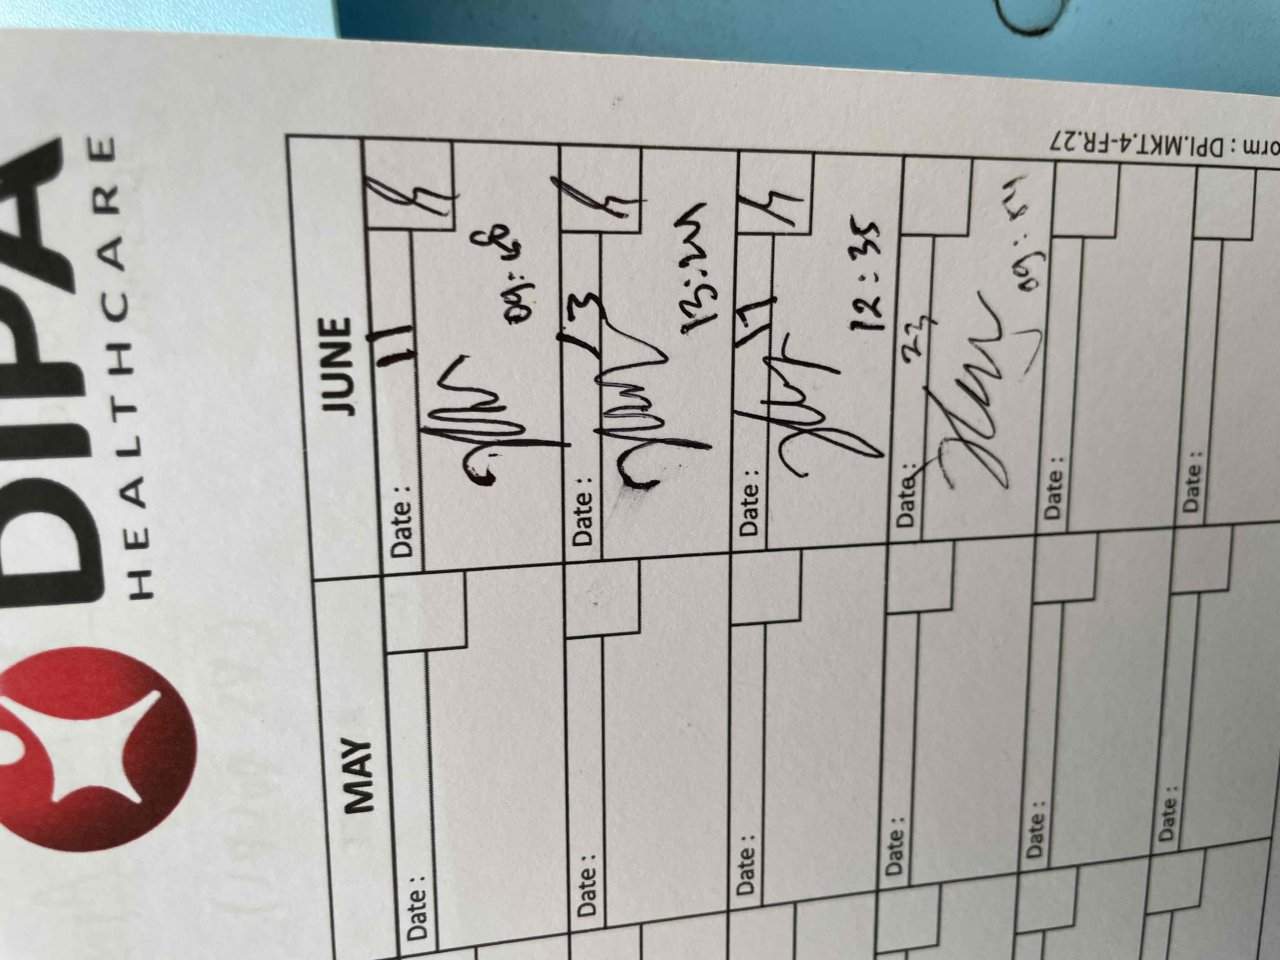 DIPA
HEALTHCARE
MAY
JUNE
Date :
Date : 11
09:58
Date :
Date : 13
13:24
Date :
Date : 17
12:35
Date :
Date : 23
09:54
Date :
Date :
Date :
Date :
orm : DPI.MKT.4-FR.27